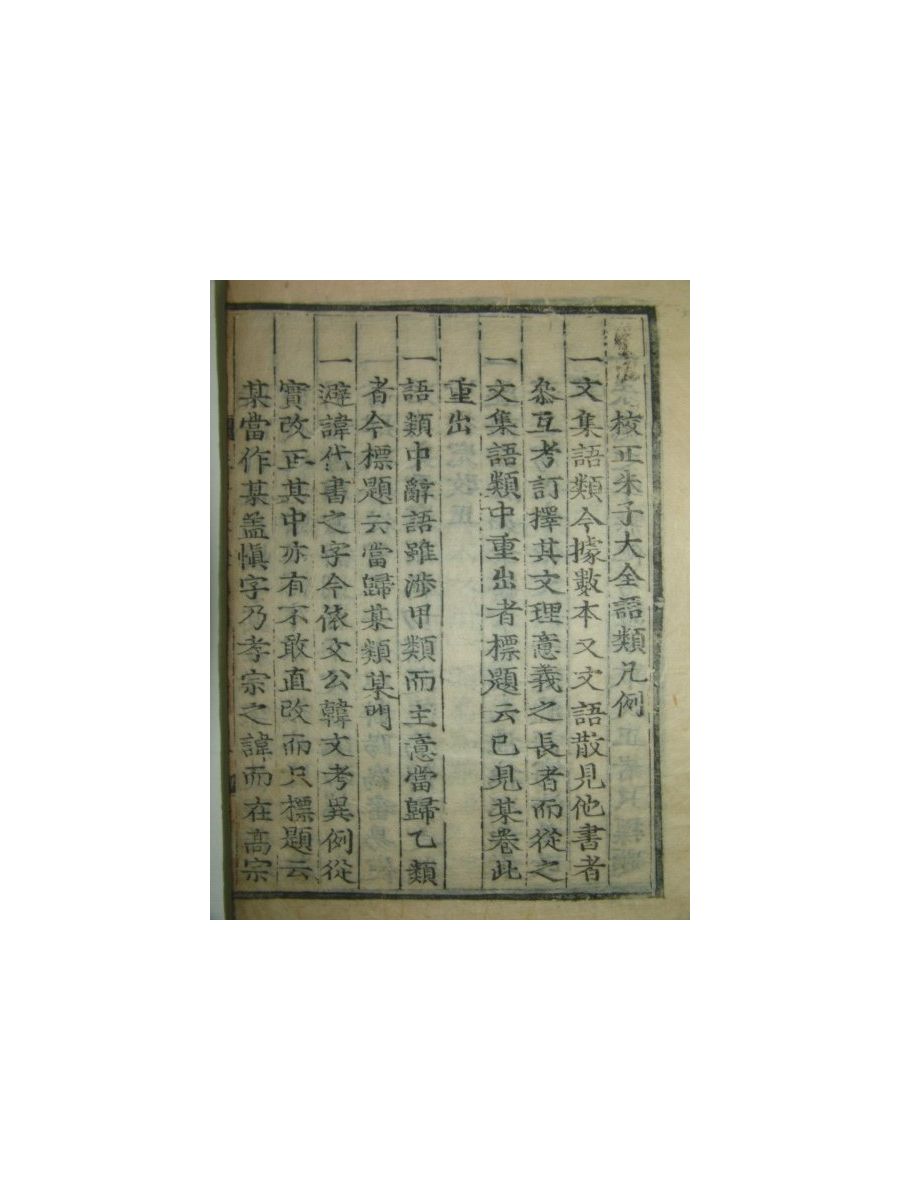 校正朱子大全語類凡例
一文集語類今據數本又文語散見他書者
叅互考訂擇其文理意義之長者而從之
一文集語類中重出者標題云已見某卷此
重出
一語類中辭語雖涉甲類而主意當歸乙類
者今標題云當歸某類某門
一避諱代書之字今依文公韓文考異例從
實改正其中亦有不敢直改而只標題云
某當作某盖愼字乃孝宗之諱而在高宗